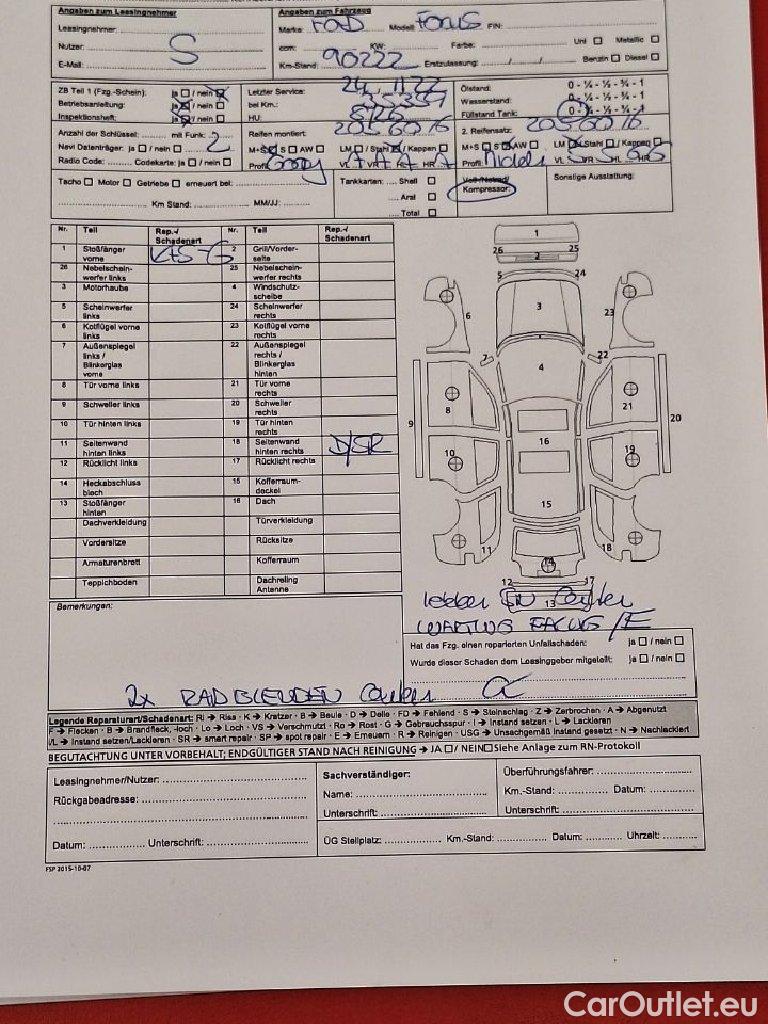 Angaben zum Leasingnehmer
Angaben zum Fahrzeug
Leasingnehmer:
Marke: FORD Modell: FOCUS FIN:
Nutzer: S
ccm: KW: Farbe: Uni Metallic
E-Mail:
Km-Stand: 90222 Erstzulassung: / / Benzin Diesel
ZB Teil 1 (Fzg.-Schein): ja / nein
Letzter Service: 24.11.22
Ölstand: 0 - ¼ - ½ - ¾ - 1
Betriebsanleitung: ja / nein
bei Km.: 35351
Wasserstand: 0 - ¼ - ½ - ¾ - 1
Inspektionsheft: ja / nein
HU: 8/26
Füllstand Tank: 0 - ¼ - ½ - ¾ - 1
Anzahl der Schlüssel: mit Funk: 2
Reifen montiert: 2056016
2. Reifensatz: 2056016
Navi Datenträger: ja / nein
M+S S AW LM / Stahl / Kappen
M+S S AW LM / Stahl / Kappen
Radio Code: Codekarte: ja / nein
Profil VL 7 VR 7 HL 7 HR 7
Profil VL VR HL HR
Tacho Motor Getriebe erneuert bei:
Km Stand: MM/JJ:
Tankkarten: Shell
Aral
Total
Voll-/Notrad/
Kompressor:
Sonstige Ausstattung:
Nr. Teil Rep.-/ Schadenart Nr. Teil Rep.-/ Schadenart
1 Stoßfänger vorne K/S-G 2 Grill/Vorder-seite
26 Nebelschein-werfer links 25 Nebelschein-werfer rechts
3 Motorhaube 4 Windschutz-scheibe
5 Scheinwerfer links 24 Scheinwerfer rechts
6 Kotflügel vorne links 23 Kotflügel vorne rechts
7 Außenspiegel links / Blinkerglas vorne 22 Außenspiegel rechts / Blinkerglas hinten
8 Tür vorne links 21 Tür vorne rechts
9 Schweller links 20 Schweller rechts
10 Tür hinten links 19 Tür hinten rechts
11 Seitenwand hinten links 18 Seitenwand hinten rechts D/SR
12 Rücklicht links 17 Rücklicht rechts
14 Heckabschluss blech 15 Kofferraum-deckel
13 Stoßfänger hinten 16 Dach
Dachverkleidung Türverkleidung
Vordersitze Rücksitze
Armaturenbrett Kofferraum
Teppichboden Dachreling Antenne
1
26 25
2
5 24
3
6 23
7 22
4
8 21
9 20
16
10 19
15
11 18
14
12 17
13
WARTUNG FÄLLIG /E
Bemerkungen:
Hat das Fzg. einen reparierten Unfallschaden: ja / nein
Wurde dieser Schaden dem Leasinggeber mitgeteilt: ja / nein
2x RADBLENDEN
Legende Reparaturart/Schadenart: RI → Riss · K → Kratzer · B → Beule · D → Delle · FD → Fehlend · S → Steinschlag · Z → Zerbrochen · A → Abgenutzt
F → Flecken · B → Brandfleck, -loch · Lo → Loch · VS → Verschmutzt · Ro → Rost · G → Gebrauchsspur · I → Instand setzen · L → Lackieren
I/L → Instand setzen/Lackieren · SR → smart repair · SP → spot repair · E → Erneuern · R → Reinigen · USG → Unsachgemäß Instand gesetzt · N → Nachlackiert
BEGUTACHTUNG UNTER VORBEHALT; ENDGÜLTIGER STAND NACH REINIGUNG → JA / NEIN Siehe Anlage zum RN-Protokoll
Leasingnehmer/Nutzer:
Sachverständiger:
Überführungsfahrer:
Rückgabeadresse:
Name:
Km.-Stand: Datum:
Unterschrift:
Unterschrift:
Datum: Unterschrift:
OG Stellplatz: Km.-Stand: Datum: Uhrzeit:
FSP 2015-10-07
CarOutlet.eu